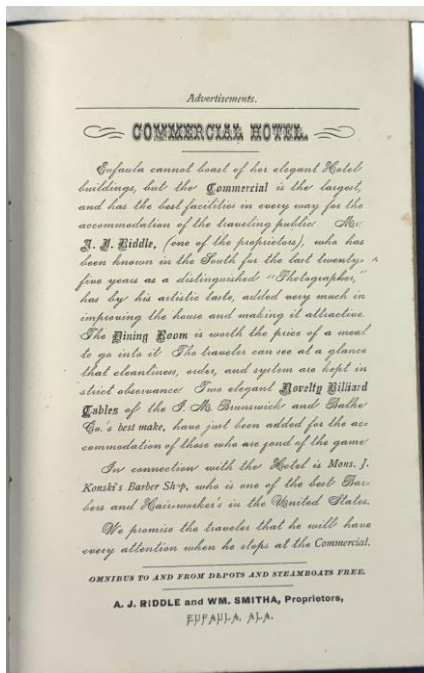 Advertisements.
COMMERCIAL HOTEL.
Eufaula cannot boast of her elegant Hotel
buildings, but the Commercial is the largest,
and has the best facilities in every way for the
accommodation of the traveling public Mr
A. J. Riddle, (one of the proprietors), who has
been known in the South for the last twenty-
five years as a distinguished "Photographer,"
has by his artistic taste, added very much in
improving the house and making it attractive.
The Dining Room is worth the price of a meal
to go into it The traveler can see at a glance
that cleanliness, order, and system are kept in
strict observance Two elegant Novelty Billiard
Tables of the J. M. Brunswick and Balke
Co.'s best make, have just been added for the ac-
commodation of those who are fond of the game
In connection with the Hotel is Mons. J.
Konski's Barber Shop, who is one of the best Bar-
bers and Hair-worker's in the United States.
We promise the traveler that he will have
every attention when he stops at the Commercial.
OMNIBUS TO AND FROM DEPOTS AND STEAMBOATS FREE.
A. J. RIDDLE and WM. SMITHA, Proprietors,
EUFAULA, ALA.